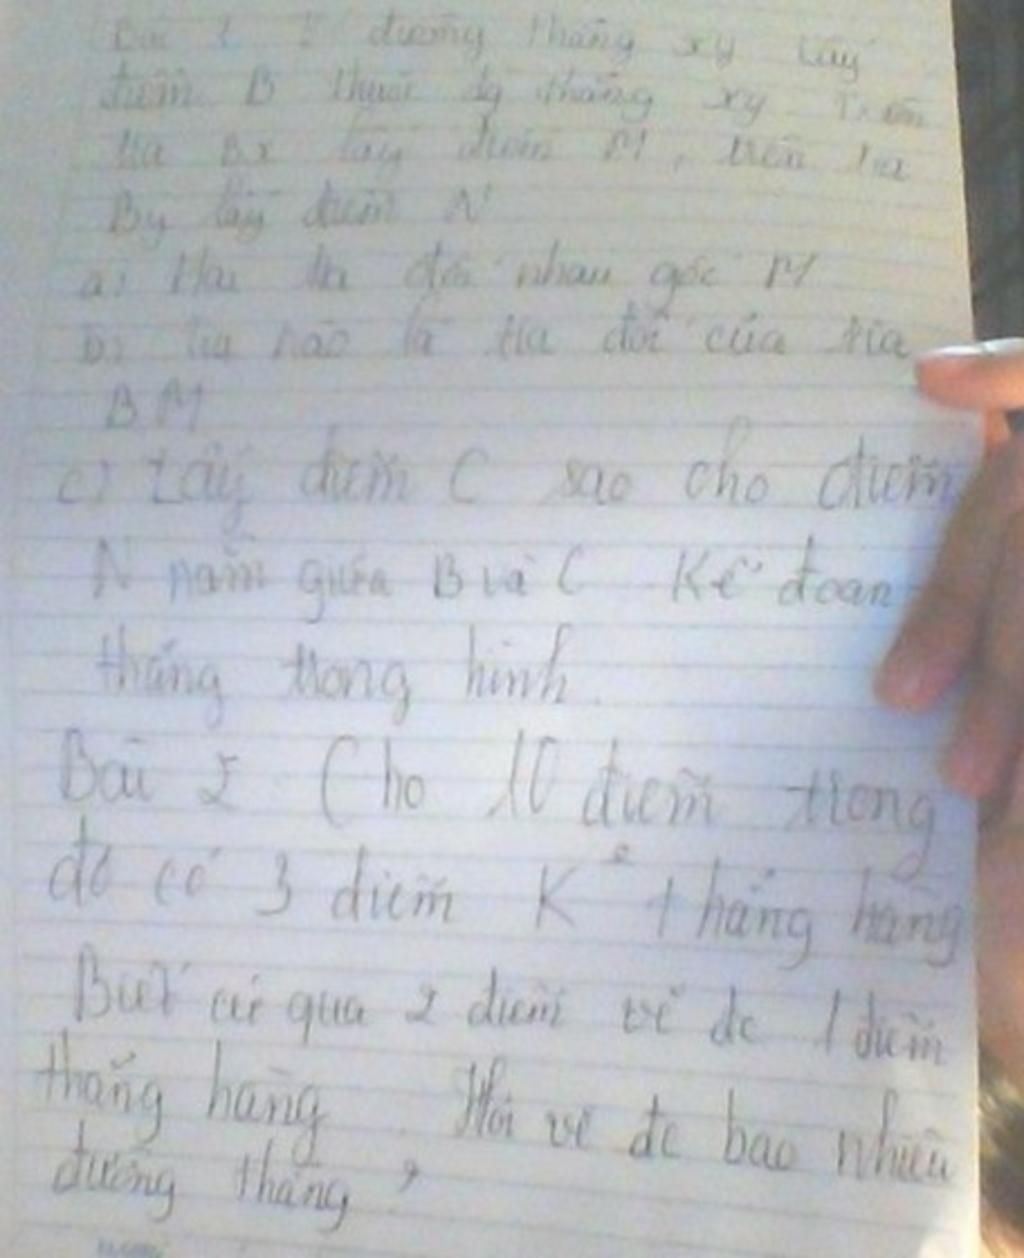 Bài 1 đường thẳng xy lấy
điểm B thuộc đg thẳng xy. Trên
tia Bx lấy điểm M, trên tia
By lấy điểm N
a) Hai tia đối nhau gốc M
b) tia nào là tia đối của tia
BM
c) Lấy điểm C sao cho điểm
N nằm giữa B và C Kể đoạn
thẳng trong hình.
Bài 2 Cho 10 điểm trong
đó có 3 điểm K° thẳng hàng
Biết cứ qua 2 điểm vẽ đc 1 điểm
thẳng hàng. Hỏi vẽ đc bao nhiêu
đường thẳng ?